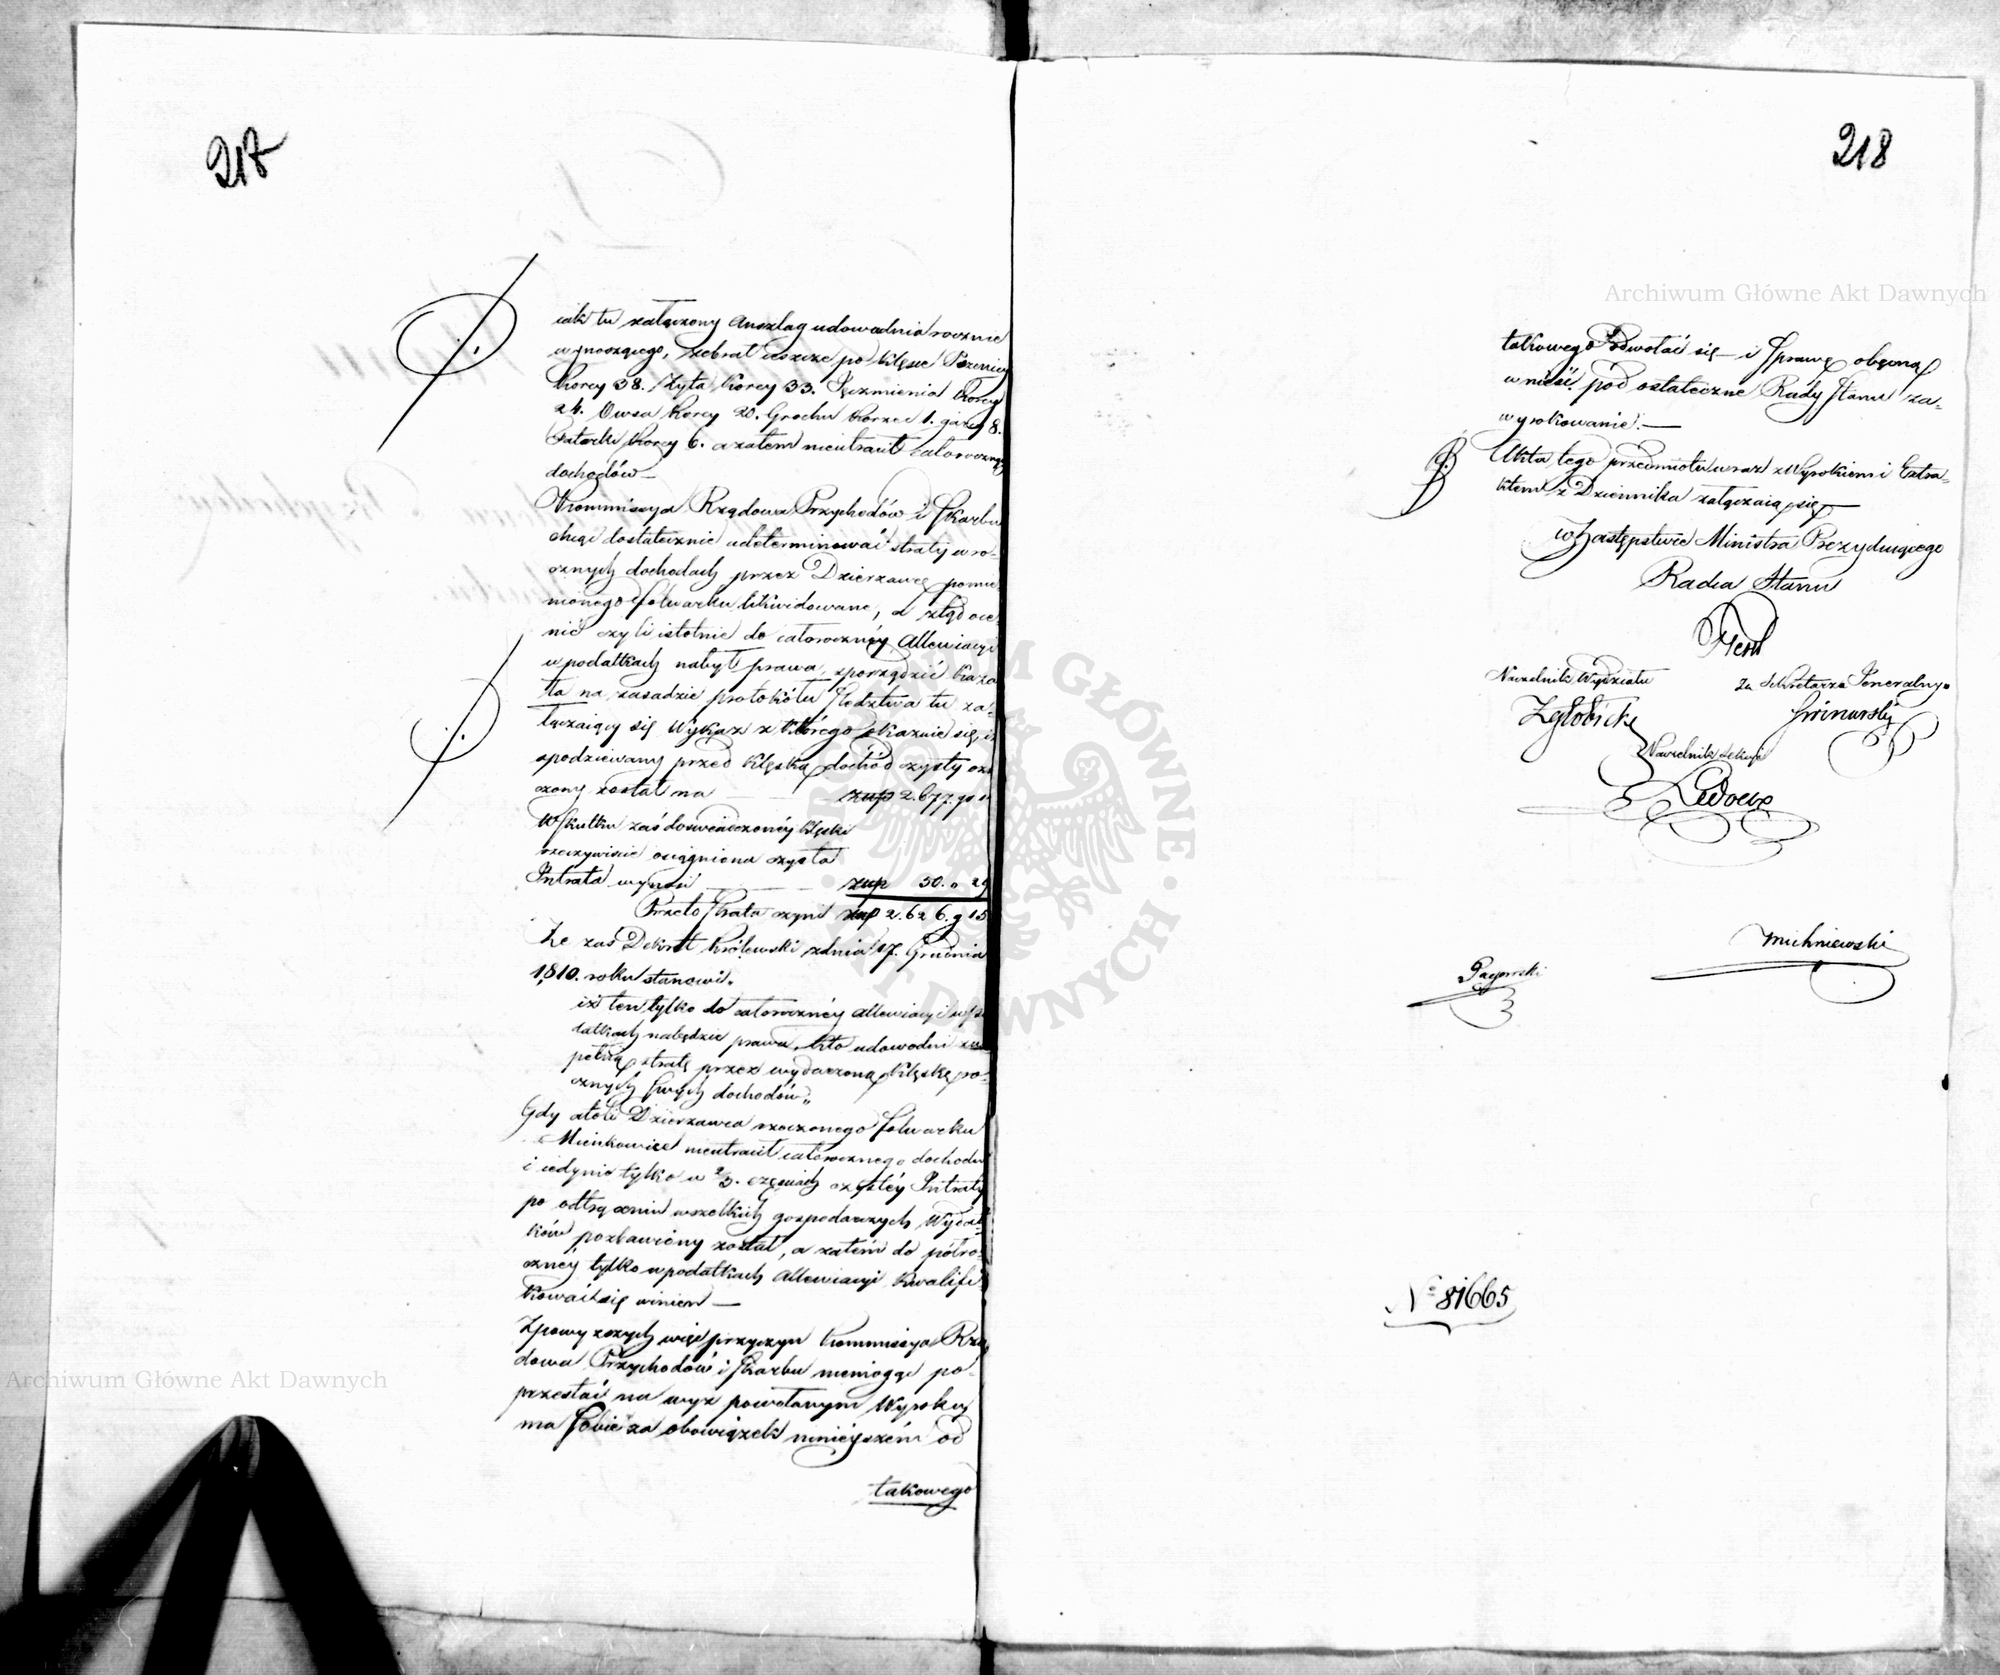 217
jak tu załączony Anszlag udowadnia rocznie
wynoszącego, zebrał jeszcze po klęsce Pszenicy
korcy 38. Żyta korcy 33. Jęczmienia korcy
24. Owsa korcy 20. Grochu korzec 1. garcy 8.
Tatarki korcy 6. a zatem nieutracił całorocznych
dochodów —
Kommissya Rządowa Przychodów i Skarbu
chcąc dostatecznie udeterminować straty w ro-
cznych dochodach przez Dzierżawcę pomie-
nionego folwarku likwidowane, a ztąd oce-
nić czyli istotnie do całorocznéy Allewiacyi
w podatkach nabył prawa, sporządzić kaza-
ła na zasadzie protokółu Śledztwa tu za-
łączaiący się Wykaz z którego okazuie się, iż
spodziewany przed klęską dochód czysty ozna-
czony został na — złp 2.677. gr 14
W skutku zaś doswiadczonéy klęski
rzeczywiście osiągniona czysta
Intrata wynosi — złp 50. „ 29
Przeto strata czyni złp 2.626. g 15
Że zaś Dekret Królewski z dnia 17. Grudnia
1810. roku stanowi„
iż ten tylko do całorocznéy Allewiacyi w po-
datkach nabędzie prawa, kto udowodni zu-
pełną stratę przez wydarzoną klęskę ro-
cznych swych dochodów„
Gdy atoli Dzierżawca rzeczonego folwarku
Mienkowice nieutracił całorocznego dochodu
i iedynie tylko w 2/3. częściach czystéy Intraty
po odtrąceniu wszelkich gospodarczych Wydat-
ków pozbawiony został, a zatém do półro-
cznéy tylko w podatkach Allewiacyi kwalifi-
kować się winien —
Z powyższych więc przyczyn Kommissya Rzą-
dowa Przychodów i Skarbu niemogąc po-
przestać na wyż powołanym Wyroku
ma sobie za obowiązek ninieyszém od
takowego
218
takowego odwołać się — i Sprawę obecną
wnieść pod ostateczne Rady Stanu za-
wyrokowanie. —
Akta tego przedmiotu wraz z Wyrokiem i Extra-
ktem z Dziennika załączaią się —
w Zastępstwie Ministra Prezyduiącego
Radca Stanu
Naczelnik Wydziału
za Sekretarza Jeneralnego
Zgłobicki
Naczelnik Sekcyi
Ledoux
Michniewski
Pagowski
No 81665
Archiwum Główne Akt Dawnych
Archiwum Główne Akt Dawnych
ARCHIWUM GŁÓWNE · AKT DAWNYCH ·